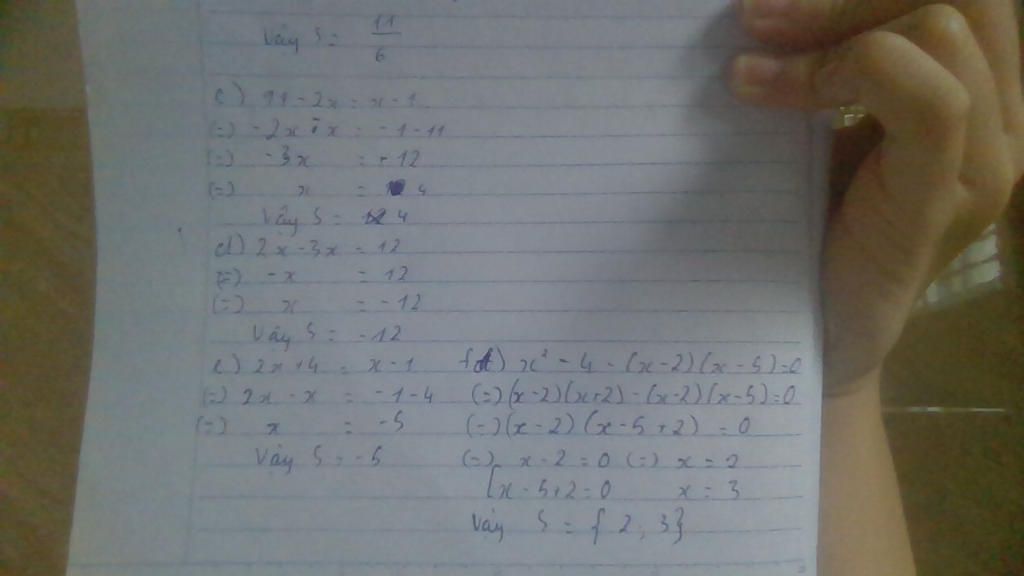 Vậy S = 11/6
c) 11 - 2x = x - 1
(=) -2x - x = -1 - 11
(=) -3x = -12
(=) x = 4
Vậy S = 4
d) 2x - 3x = 12
(=) -x = 12
(=) x = -12
Vậy S = -12
e) 2x + 4 = x - 1
(=) 2x - x = -1 - 4
(=) x = -5
Vậy S = -5
f) x² - 4 - (x-2)(x-5) = 0
(=) (x-2)(x+2) - (x-2)(x-5) = 0
(=) (x-2)(x-5+2) = 0
(=) [x-2 = 0 (=) x = 2
x-5+2 = 0 x = 3
Vậy S = {2; 3}